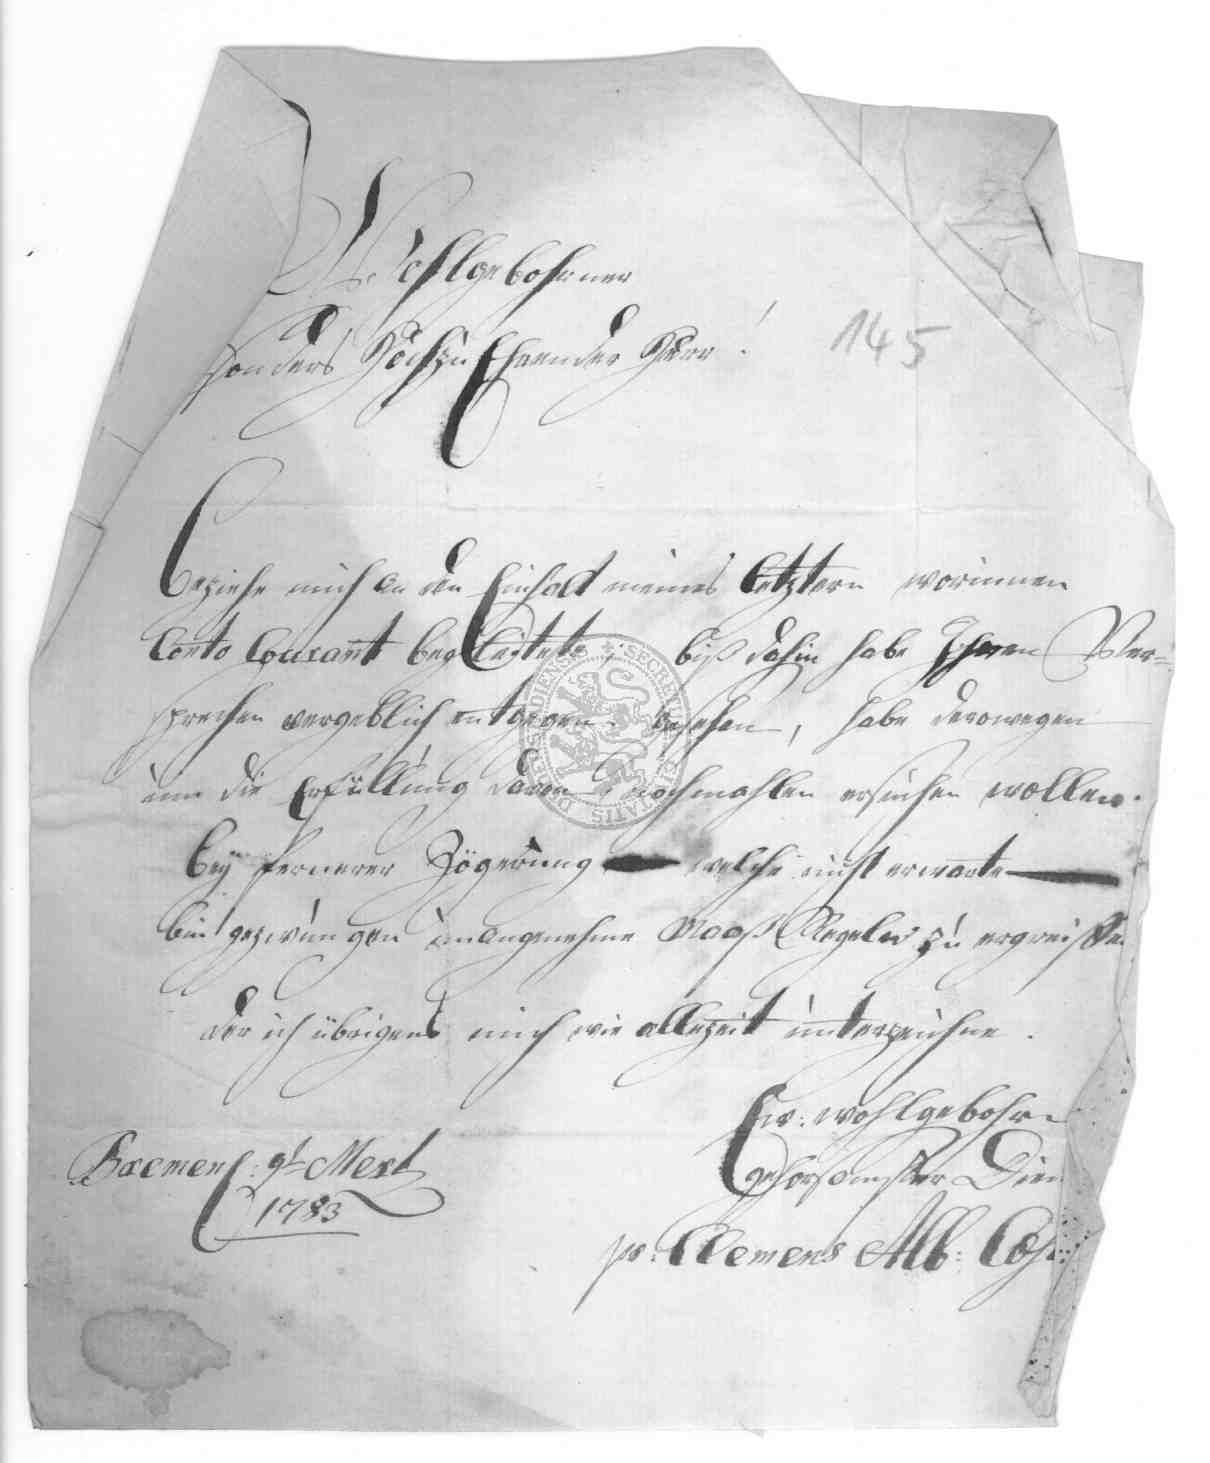 Wohlgebohrner
sonders Hochzu Ehrender Herr!
145
Beziehe mich an den Einhalt meines letztern worinnen
Conto Courant begleitete, biß dahin habe Ihren Ver=
sprechen vergeblich entgegen gesehen, habe derowegen
um die Erfüllung davon nochmahlen ersuchen wollen.
bey fernerer Zögerung — welche nicht erwarte —
bin gezwungen unangenehme Maaß Regeln zu ergreiffen
der ich übrigens mich wie allezeit unterzeichne.
Ew: wohlgebohrn
gehorsamster Dien
Bremen d: 9t Mert
1783
pr. Clemens Alb: